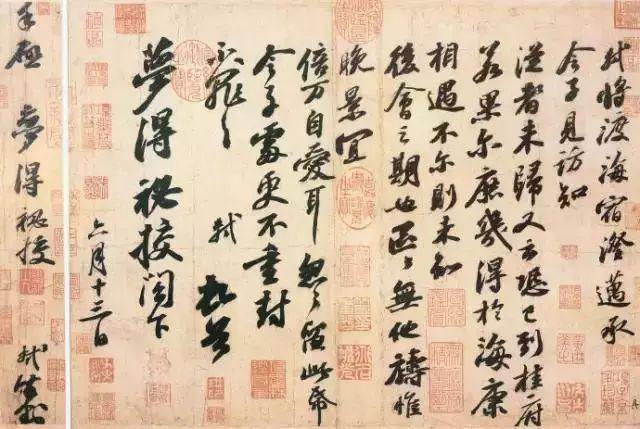 軾將渡海宿澄邁承
令子見訪知
從者未歸又云恐已到桂府
若果尔庶幾得於海康
相遇不尔則未知
後會之期也區々無他禱惟
晚景宜
倍万自愛耳怱々留此帋
令子處更不重封
不罪々
軾頓首
夢得秘校閤下
六月十三日
手啟
夢得秘校
軾封